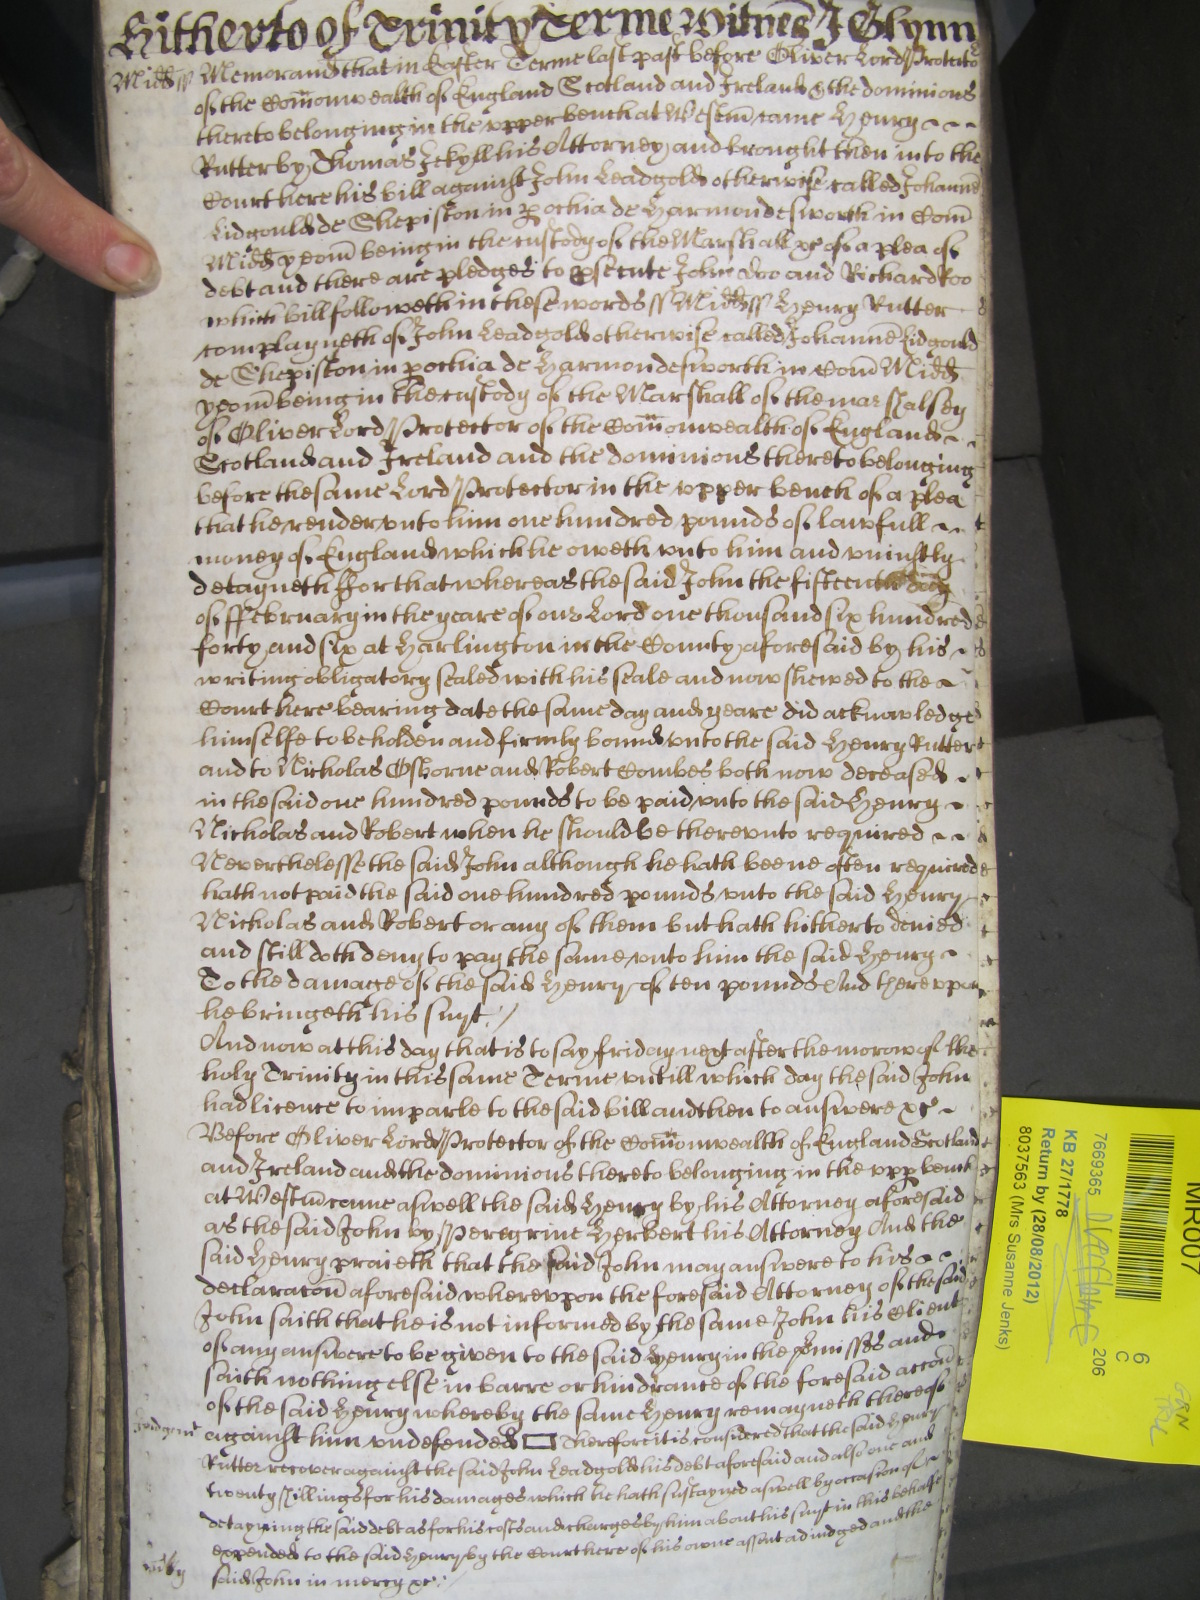 Hitherto of Trinity Terme Witnes J Glynn
Midds ss Memorand that in Easter Terme last past before Oliver Lord Protector
of the Com̅onwealth of England Scotland and Ireland & the dominions
thereto belonging in the upper bench at Westm̅ came Henry
Rutter by Thomas Jekyll his Attorney and brought then into the
Court here his bill against John Leadgold otherwise called Johanne̅
Lidgould de Shepiston in p̱ochia de Harmondesworth in Com̅
Midd̅ yeom̅ being in the custody of the Marshall &c of a plea of
debt and there are pledges to p̱secute John Doo and Richard Roo
which bill followeth in these words ss Midds ss Henry Rutter
complayneth of John Leadgold otherwise called Johanne̅ Lidgould
de Shepiston in p̱ochia de Harmondesworth in Com̅ Midd̅
yeom̅ being in the custody of the Marshall of the marshalsey
of Oliver Lord Protector of the Com̅onwealth of England
Scotland and Ireland and the dominions thereto belonging
before the same Lord Protector in the upper bench of a plea
that he render unto him one hundred pounds of lawfull
money of England which he oweth unto him and uniustly
detayneth ffor that whereas the said John the fifteenth day
of ffebruary in the yeare of our Lord one thousand six hundred
forty and six at Harlington in the County aforesaid by his
writing obligatory sealed with his seale and now shewed to the
Court here bearing date the same day and yeare did acknowledge
himselfe to be holden and firmly bound unto the said Henry Rutter
and to Nicholas Osborne and Robert Combes both now deceased
in the said one hundred pounds to be paid unto the said Henry
Nicholas and Robert when he should be thereunto required
Neverthelesse the said John although he hath beene often required
hath not paid the said one hundred pounds unto the said Henry
Nicholas and Robert or any of them but hath hitherto denied
and still doth deny to pay the same unto him the said Henry
To the damage of the said Henry of ten pounds And thereupon
he bringeth his suyt /
And now at this day that is to say friday next after the morow of the
holy Trinity in this same Terme untill which day the said John
had licence to imparle to the said bill and then to answere &c
Before Oliver Lord Protector of the Com̅onwealth of England Scotland
and Ireland and the dominions thereto belonging in the upp̱ bench
at Westm̅ came aswell the said Henry by his Attorney aforesaid
as the said John by Peregrine Herbert his Attorney And the
said Henry praieth that the said John may answere to his
declaraco̅n aforesaid whereupon the foresaid Attorney of the said
John saith that he is not informed by the same John his Client
of any answere to be given to the said Henry in the p̅misses and
saith nothing else in barre or hindrance of the foresaid acco̅n
of the said Henry whereby the same Henry remayneth thereof
against him undefended Therefore it is considered that the said Henry
Rutter recover against the said John Leadgold his debt aforesaid and also one and
twenty shillings for his damages which he hath sustayned aswell by occasion of
detayning the said debt as for his costs and charges by him about his suyt in this behalfe
expended to the said Henry by the Court here of his owne assent adiudged and the
said John in mercy &c /
MR007
6
C
206
7669365
KB 27/1778
Return by (28/08/2012)
8037563 (Mrs Susanne Jenks)